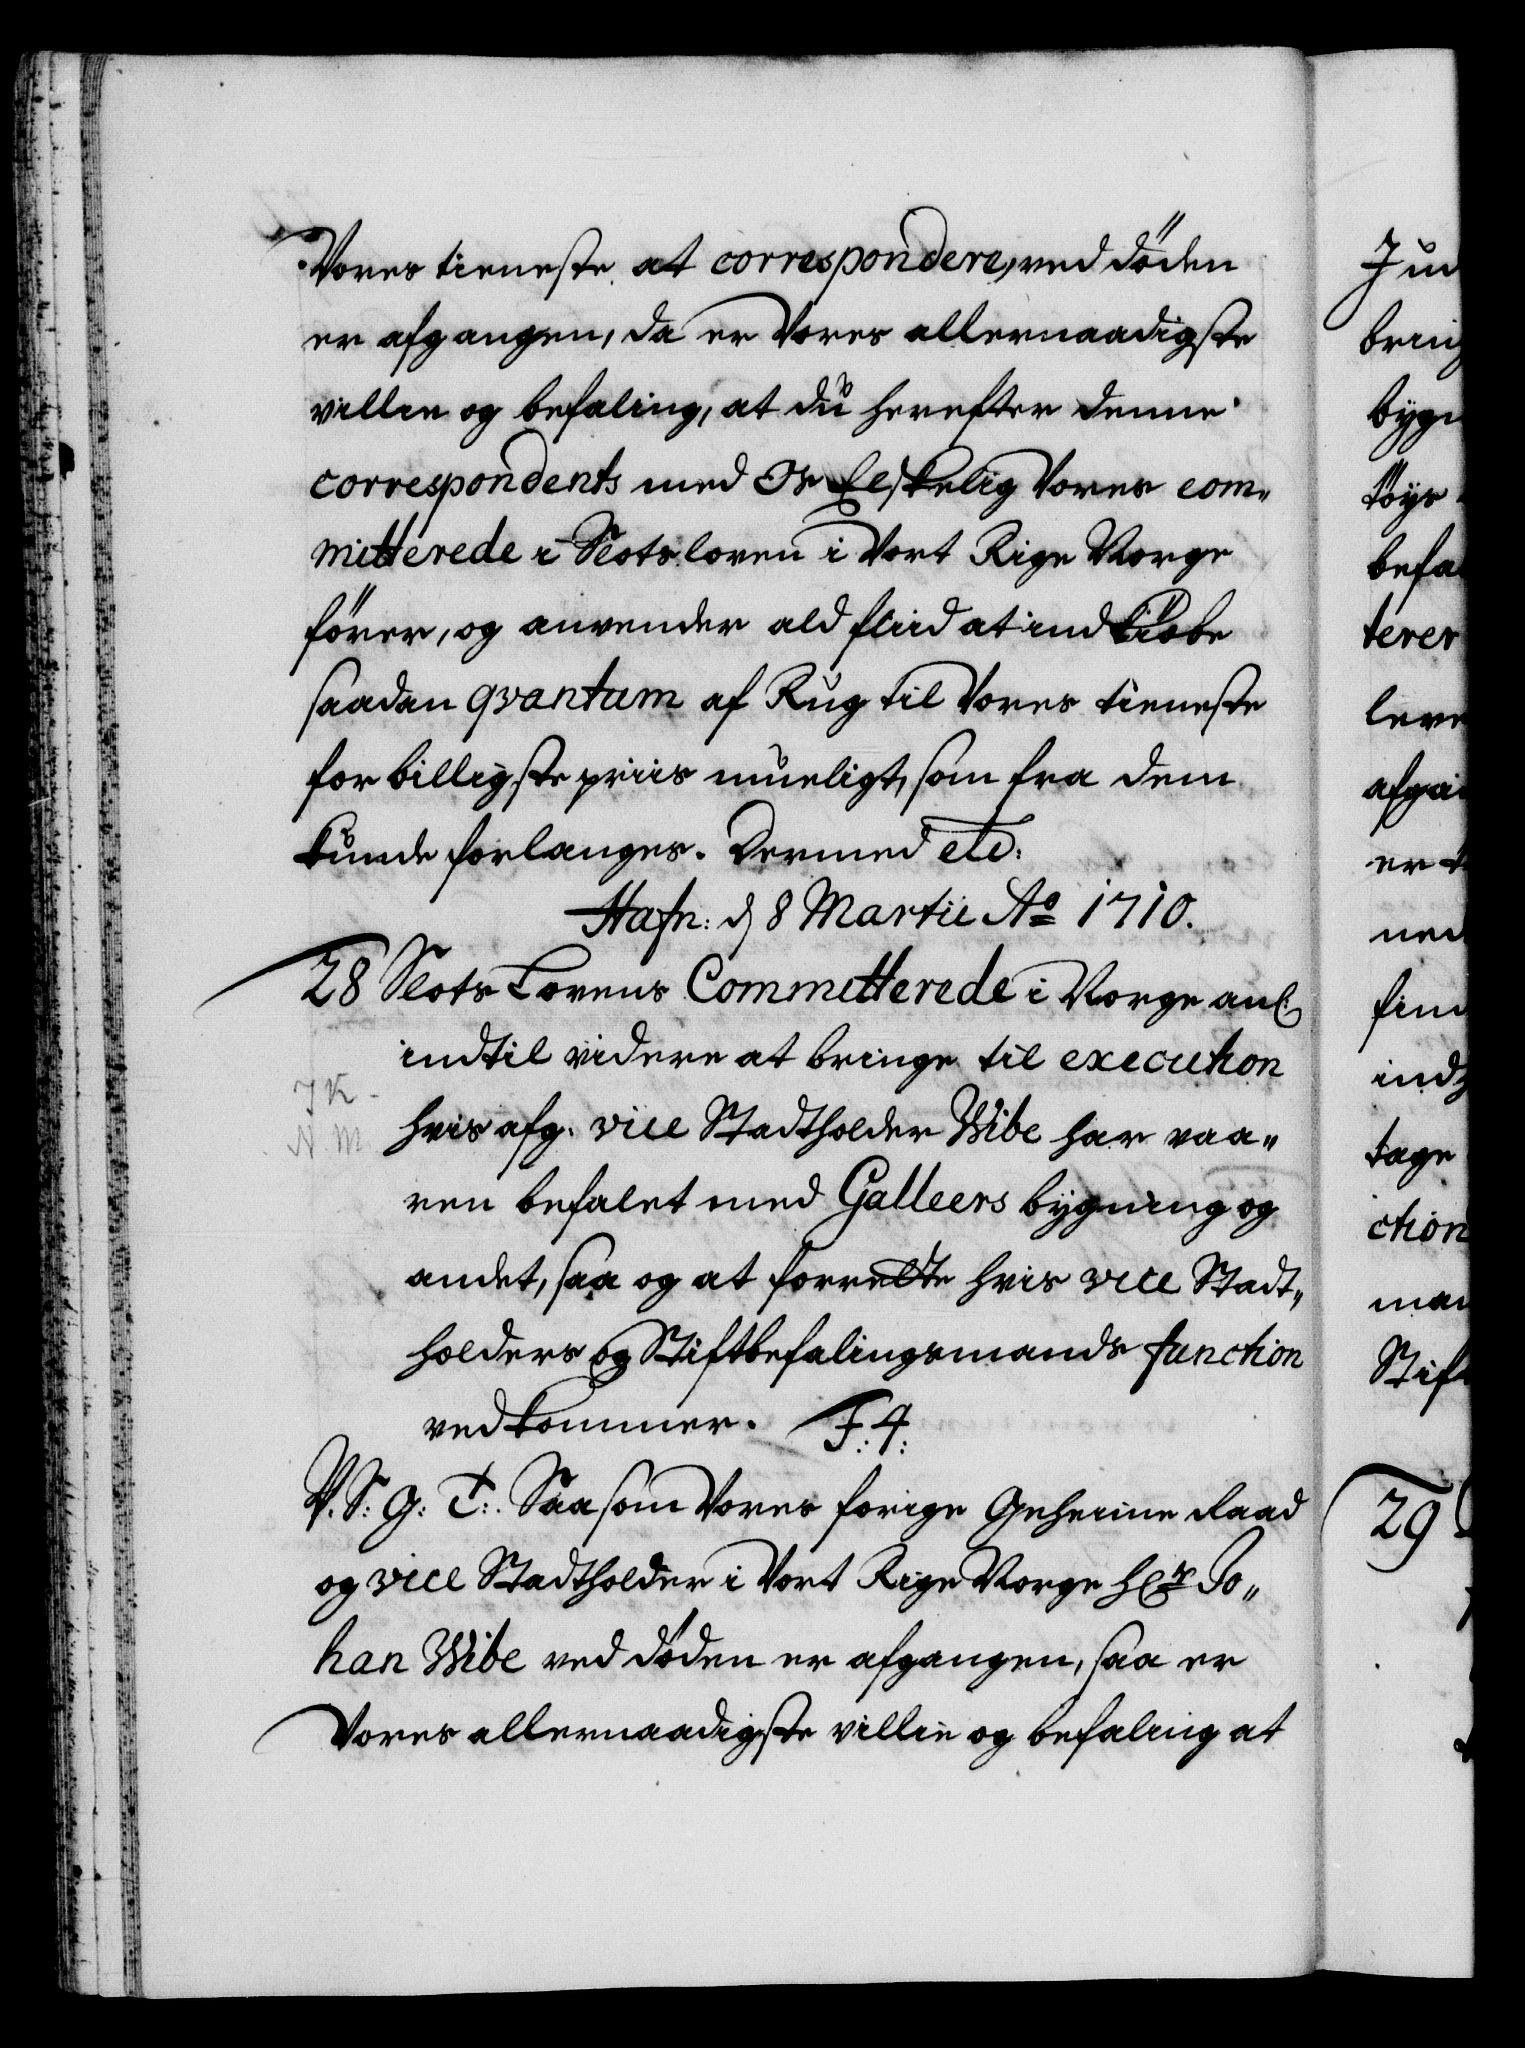 Vores tieneste at correspondere, ved döden
er afgangen, da er Vores allernaadigste
villie og befaling, at du herefter denne
correspondents med Os Elskelig Vores com„
mitterede i Slotsloven i Vort Rige Norge
förer, og anvender ald fliid at indkiöbe
saadan qvantum af Rug til Vores tieneste
for billigste priis mueligt, som fra dem
kunde forlanges. Dermed etc:
Hafn: d 8 Martii Ao 1710.
28 Slots Lovens Committerede i Norge anl:
indtil videre at bringe til execution
JK.
hvis afg. vice Stadtholder Wibe har vaa„
N. M
ren befalet med Galleers bygning og
andet, saa og at forrette hvis vice Stadt„
holders og Stiftbefalingsmands function
vedkommer. F. 4:
V. S: G: T:. Saasom Vores forige Geheime Raad
og vice Stadtholder i Vort Rige Norge Hr Jo„
han Wibe ved döden er afgangen, saa er
Vores allernaadigste villie og befaling at
Jud
bring
bygn
töys
befa
terer
leve
afga
er
ned
find
ind
tage
ction
man
Stif
29